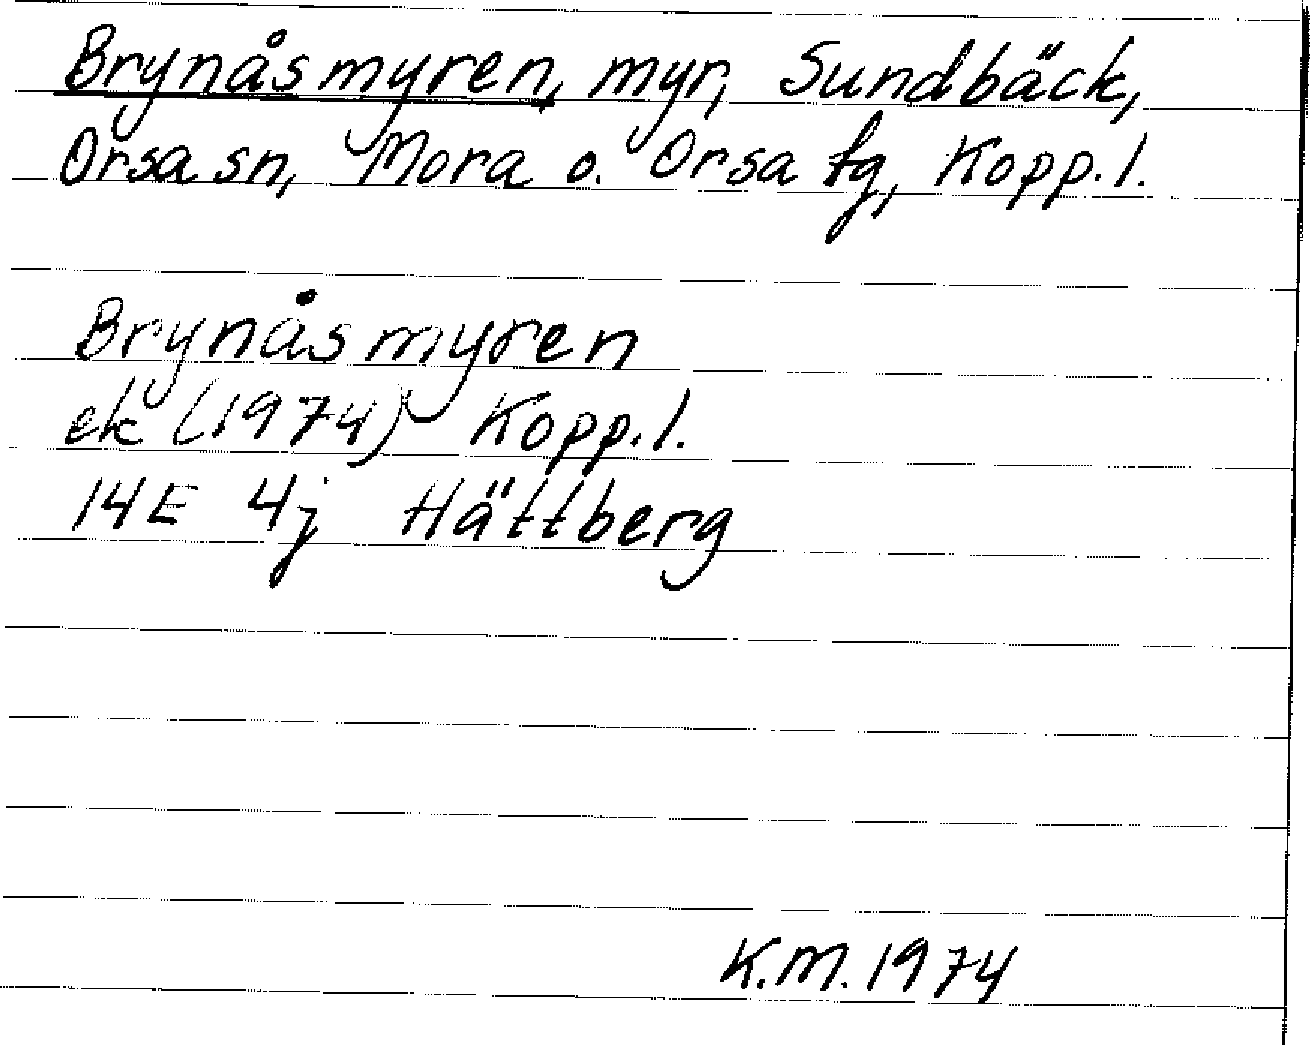 Brynåsmyren, myr, Sundbäck,
Orsa sn, Mora o. Orsa tg, Kopp. l.
Brynåsmyren
ek (1974) Kopp. l.
14E 4j Hättberg
K.M. 1974